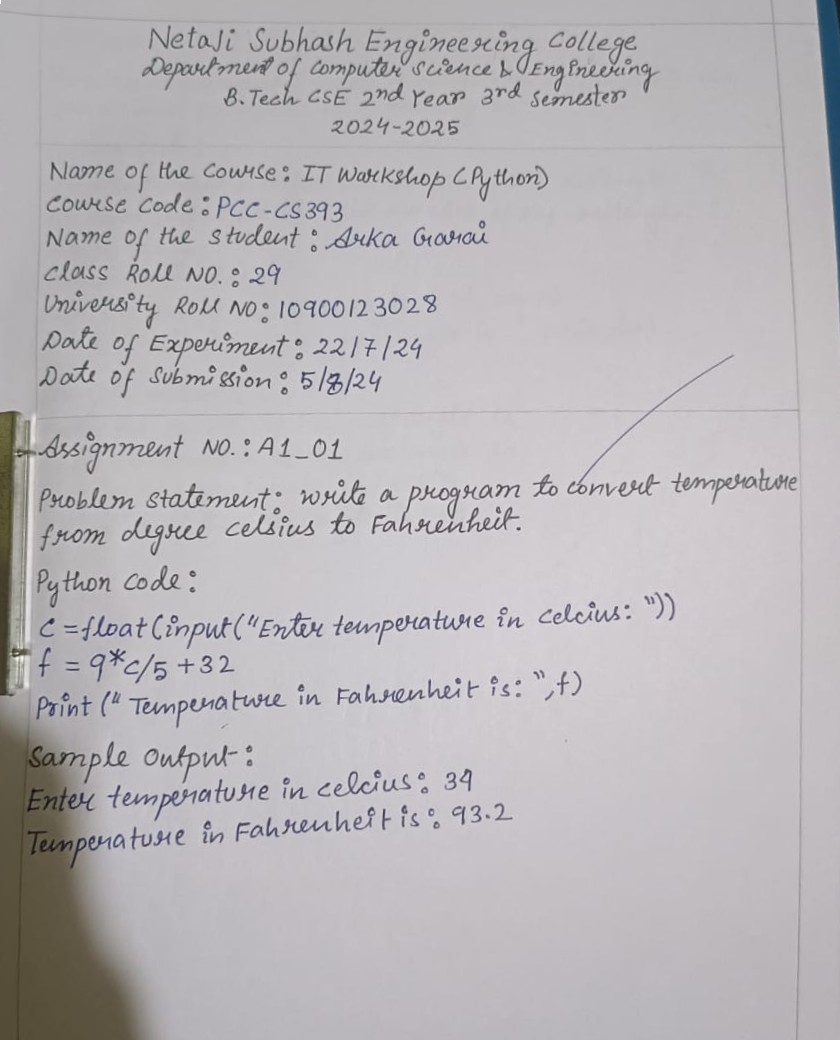 Netaji Subhash Engineering College
Department of Computer Science & Engineering
B.Tech CSE 2nd Year 3rd Semester
2024-2025
Name of the Course: IT Workshop (Python)
Course Code: PCC-CS393
Name of the student: Arka Garai
Class Roll NO.: 29
University Roll NO: 10900123028
Date of Experiment: 22/7/24
Date of Submission: 5/8/24
Assignment NO.: A1_01
Problem statement: write a program to convert temperature
from degree celsius to Fahrenheit.
Python code:
C =float(input("Enter temperature in celcius: "))
f = 9*c/5 +32
Print (" Temperature in Fahrenheit is: ",f)
Sample Output:
Enter temperature in celcius: 34
Temperature in Fahrenheit is: 93.2